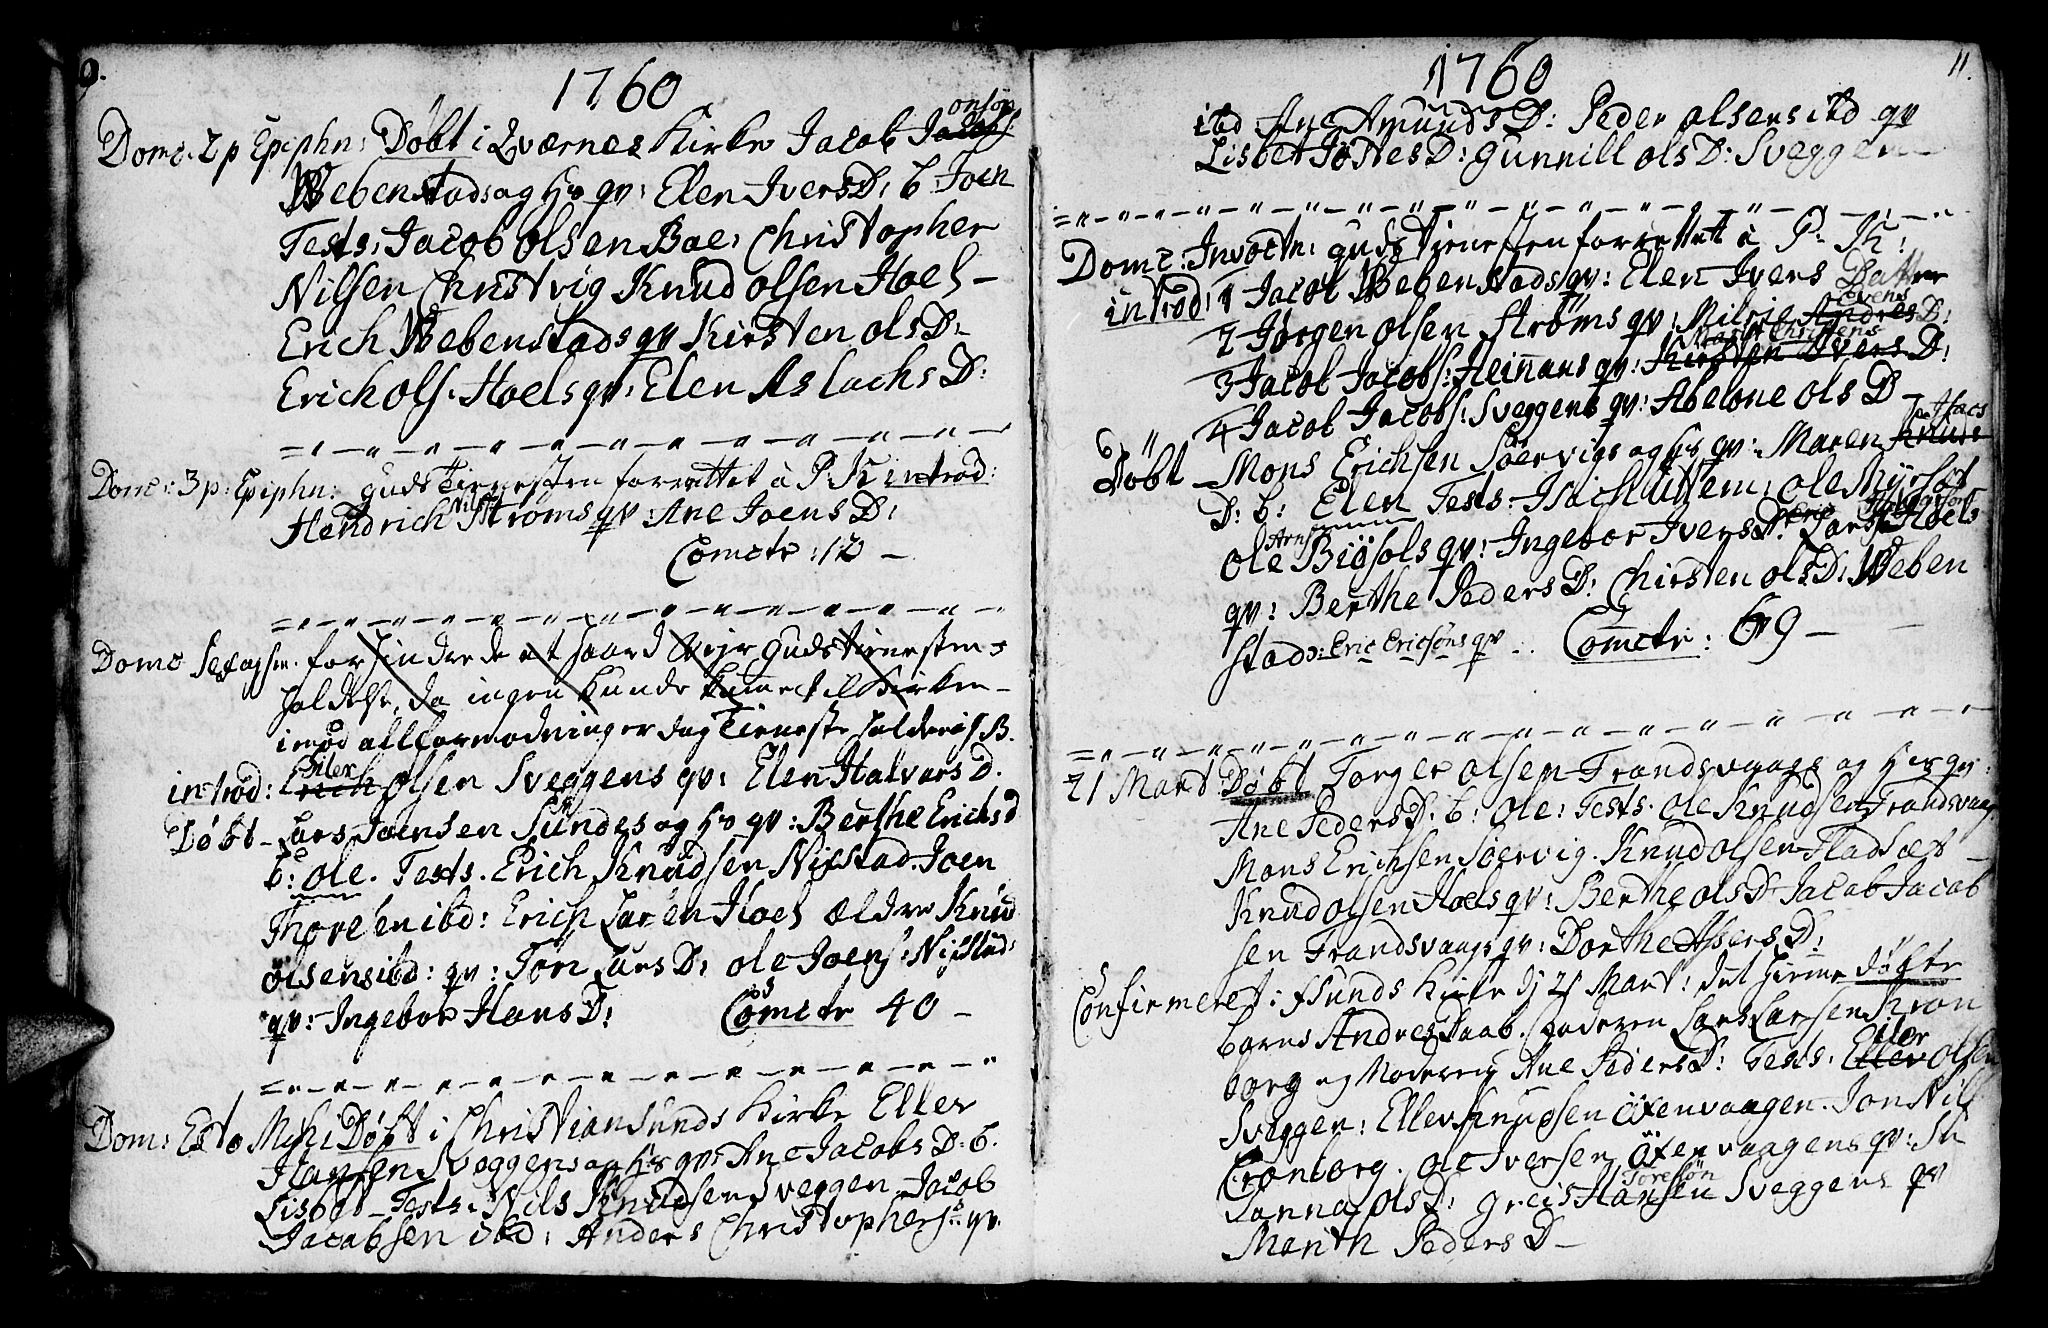 9.
1760
Domc. 2 p Epiphn: Döbt i Qværnes Kirke Jacob Jacobs
onsön
Webenstads og Hs qv: Elen IversD: b: Joen
Tests: Jacob Olsen Boe: Christopher
Nilsen Christvig Knud Olsen Hoels –
Erich Webenstads qv Kirsten OlsD:
Erich Ols: Hoels qv: Elen AslachsD:
Domc: 3 p: Epiphn: Guds Tienesten forrettet i P: K introd:
Hendrich Nils Ströms qv: Ane JoensD:
Comctr: 12 –
Domc Sexagsm. forhindrede et haard Vejr Guds tienesten
holdest, da ingen kunde komme til Kirken –
imod all formodning er dog Tieneste holden
introd: Erich Olsen Sveggens qv: Elen HalvarsD.
Eiler
Döbt – Lars Joensen Sundes og Hs qv: Berthe ErichsD
b: Ole. Tests. Erich Knudsen Nistad Joen
Thoresen ibd: Erich Larsen Hoel ældre Knud
Olsen ibd: qv: Tön LarsD: Ole Joens: Nistad:
qv: Ingebor HansD: Comctr 40 –
Dom: Esto Mihi Döbt i Christiansunds Kirke Eller
Hansen Sveggens og Hs qv: Ane JacobsD: b.
Lisbet – Tests. Nils Knudsen Sveggen Jacob
Jacobsen ibd: Anders Christophers: qv:
11.
1760
ibd Ane AmundsD: Peder Olsens ibd qv
Lisbet JöttesD: Gunnill OlsD: Sveggen –
Domc: Invoctn: Guds Tienesten forrettet i P: K:
introd: 1 Jacob Webenstads qv: Elen Ivers Datter
2 Jörgen Olsen Ströms qv: Milsie AndresD:
Evens
3 Jacob Jacobs: Heinnaus qv: Kirsten IversD:
Marit Christens
4 Jacob Jacobs: Sveggens qv: Abelone OlsD –
Döbt – Mons Erichsen Söervigs og Hs qv: Maren Knuds
Isacs
D: b: Elen Tests – Ole
Ole Arns Biösols qv: Ingebor IversD: Lars Hoels
qv: Berthe PedersD: Chirsten OlsD: Weben
stad: Eric Ericsöns qv .. Comctr: 69 –
21 Mart Döbt Torger Olsen Trandsvaags og Hs qv:
Ane PedersD: b: Ole: Tests. Ole Knudsen Trandsvaag
Mons Erichsen Söervig. Knud Olsen Fladsæt –
Knud Olsen Hoels qv: Berthe OlsD Jacob Jacob
sen Trandsvaags qv: Dorthe AssersD:
Confirmeret i Xsunds Kirke dj 21 Mart: det hieme döbte
barns Andres Daab. Faderen Lars Larsen Kron
borg og Moderen Ane PedersD: Tests: Eller Olsen
Eiler
Sveggen: Eller Knudsen Öxenvaagen. Jon Nils
Cronborg. Ole Iversen Öxenvaagens qv: Su
sanna OlsD: Greis Hansen Sveggens qv
Toresön
Marith PedersD –